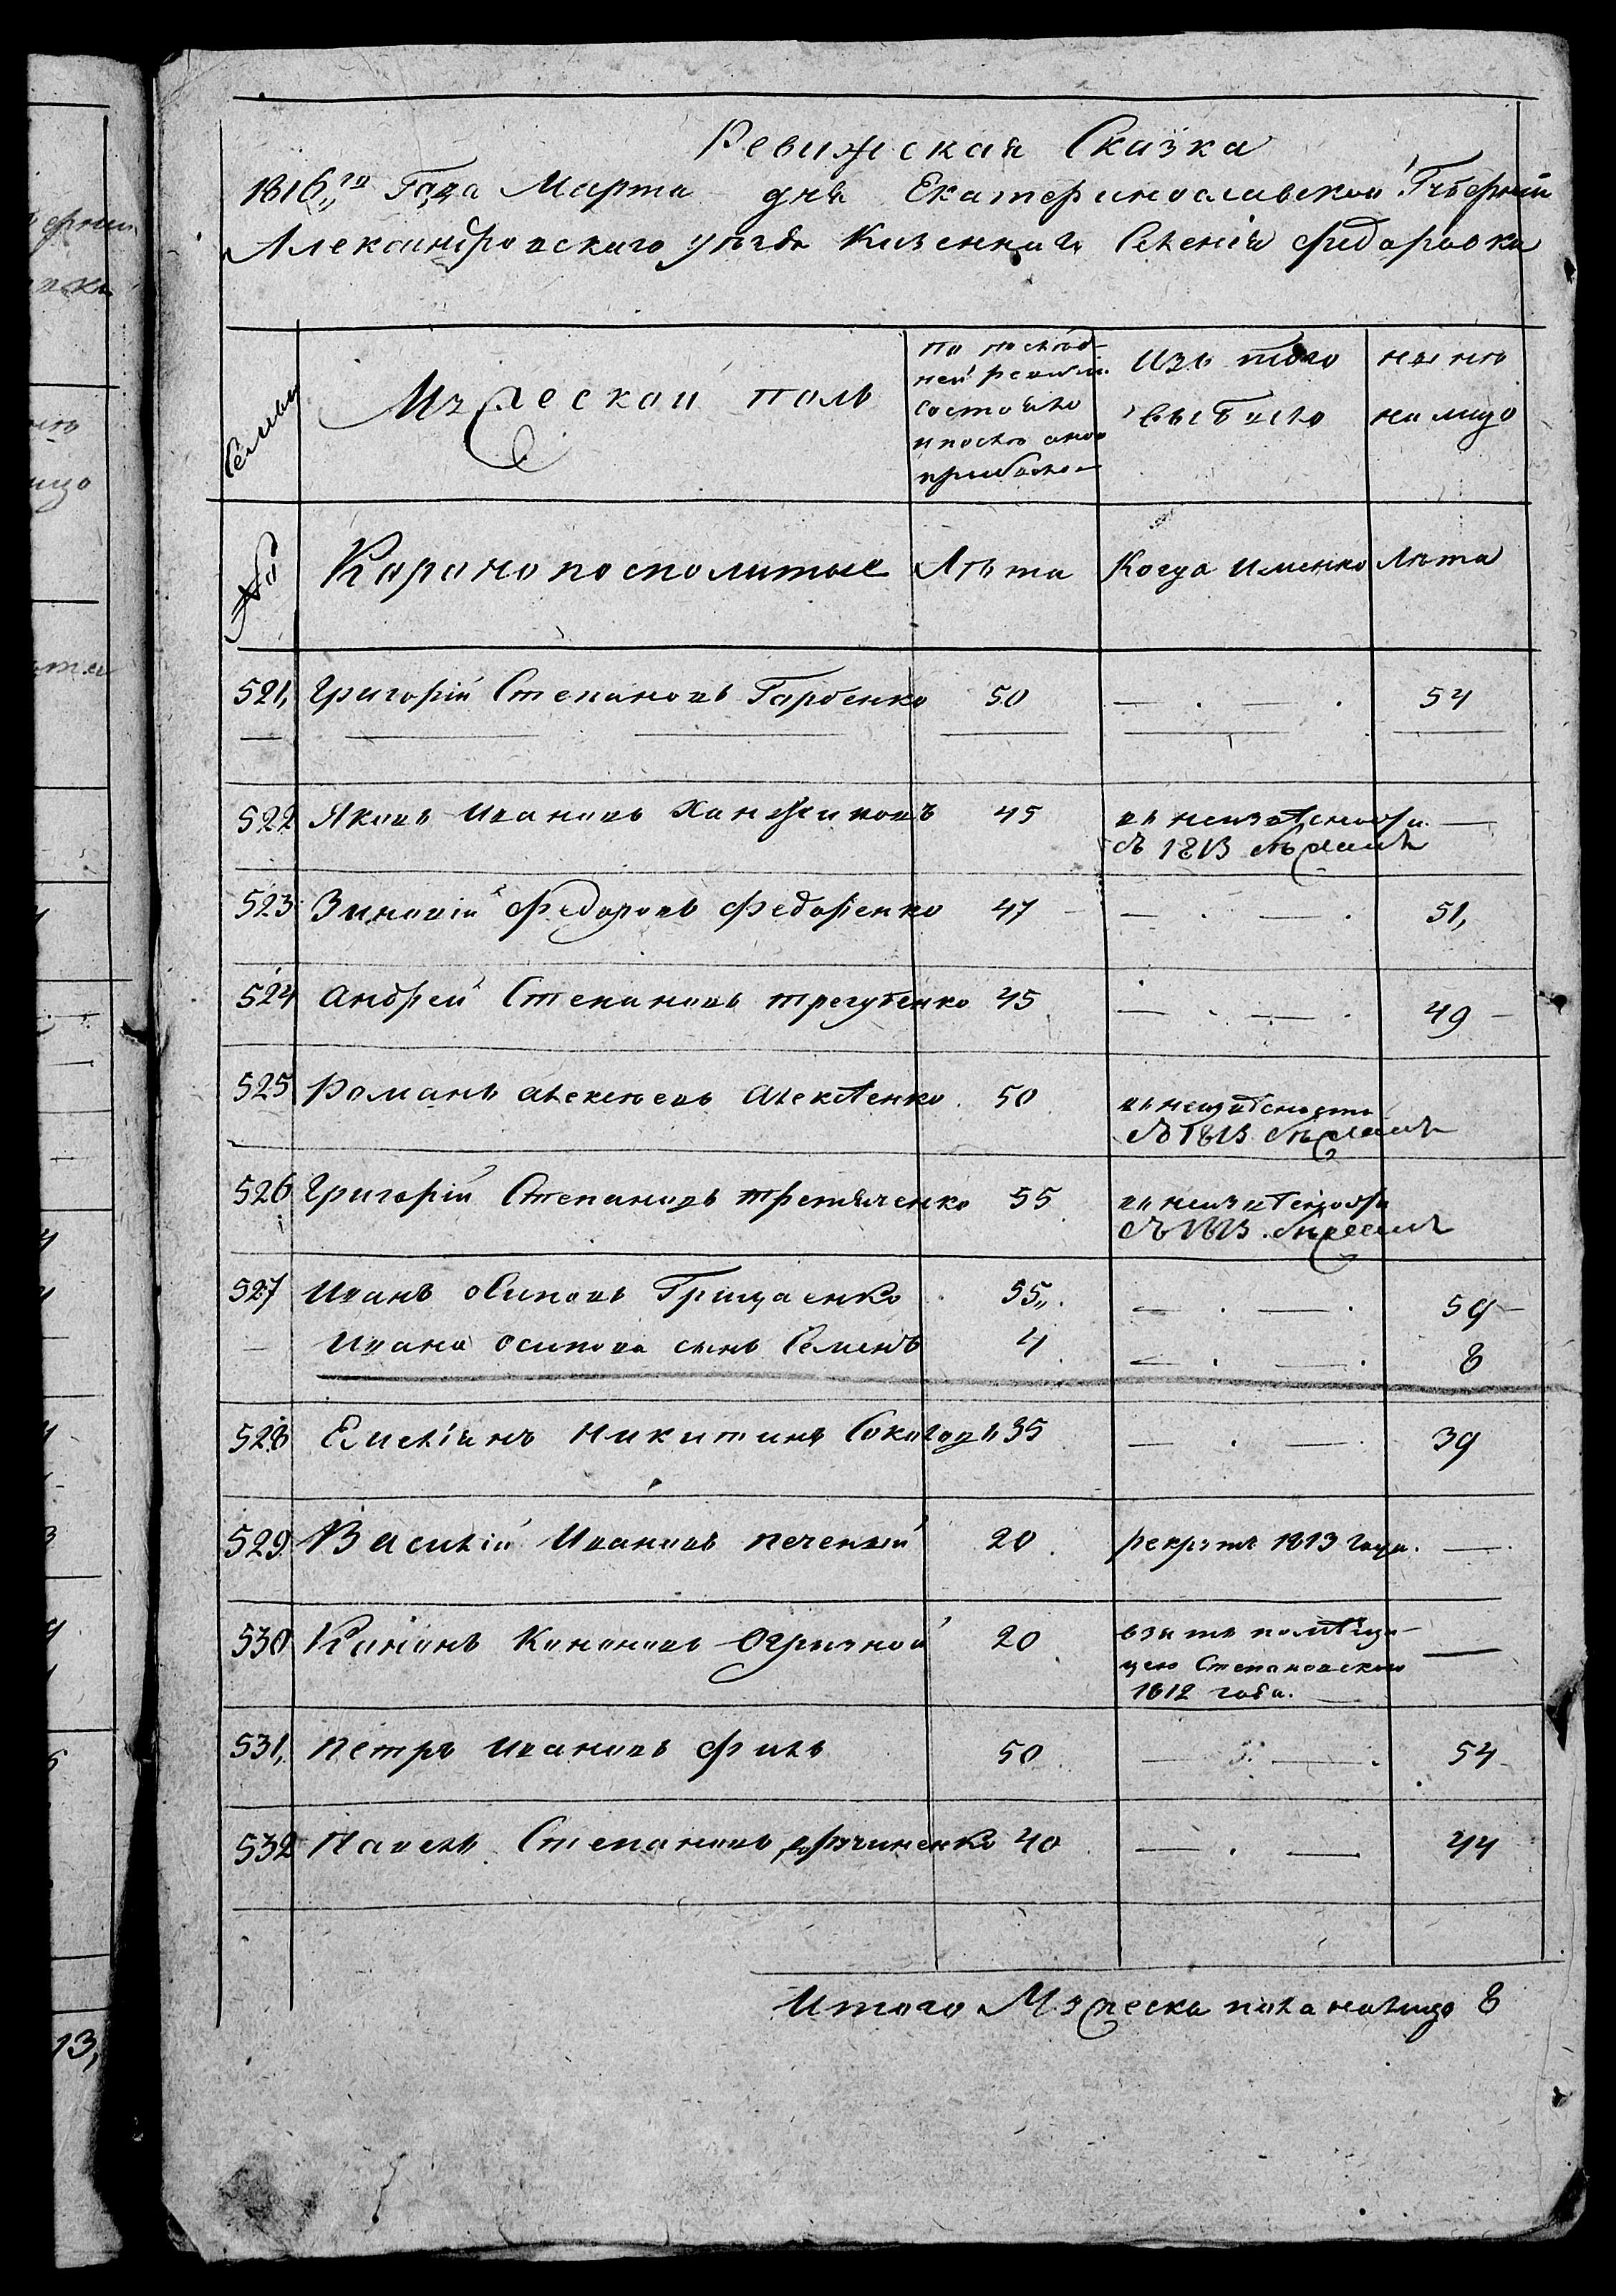 Ревижская Сказка
1816го Года Марта дня Екатеринославской Гъбернии
Александровскаго уѣзда Казеннаго Селения Федоровки
Семьи
Мужеской полъ
По послѣд-
ней ревизии
состояло
и послѣ оной
прибыло
Изъ того
выбыло
нынѣ
на лицо
№
Короннопосполитые
Лѣта
Когда именно
Лѣта
521, Григорій Степановъ Гарбенко 50 — . — . 54
522 Яковъ Ивановъ Ханжиновъ 45 въ неизвѣстности —
съ 1813
523 Зиновій Федоровъ Федоренко 47 — . — . 51,
524 Андрей Степановъ Трегубенко 45 — . — . 49
525 Романъ Алексѣевъ Алексѣенко 50 въ неизвѣстности
съ 1813
526 Григорій Степановъ Третяченко 55 въ неизвѣстности
съ 1813
527 Иванъ Осиповъ Грицаенко 55,, — . — . 59
Ивана Осипова сынъ Семенъ 4 — . — . 8
528 Емиліянъ Никитинъ Соколовъ 35 — . — . 39
529 Василій Ивановъ Печеный 20 рекрутъ 1813 года. —
530 Кононъ Кононовъ Огризной 20 взятъ помѣщи-
цею Степановскою —
1812 года.
531, Петръ Ивановъ Филь 50 — — . 54
532 Павелъ Степановъ 40 — . — 44
Итого Мужеска пола налицо 8
13,